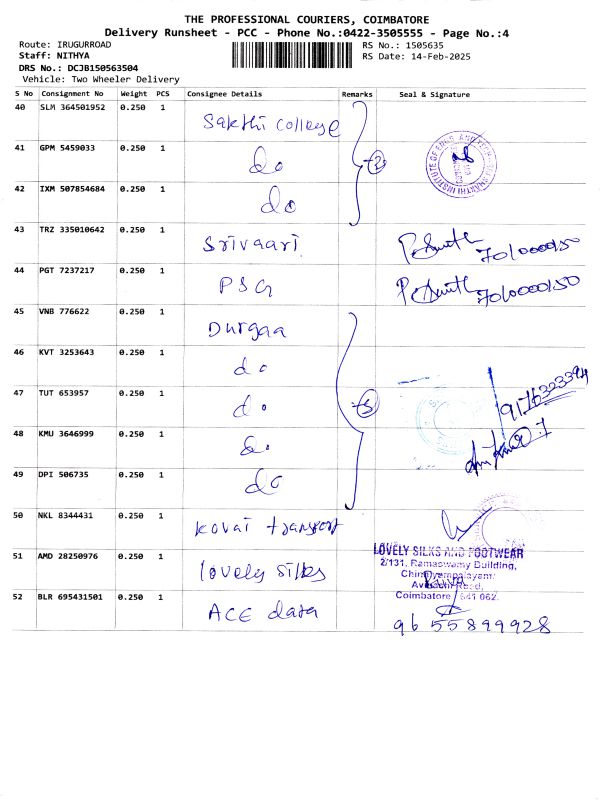 THE PROFESSIONAL COURIERS, COIMBATORE
Delivery Runsheet - PCC - Phone No.:0422-3505555 - Page No.:4
Route: IRUGURROAD
RS No.: 1505635
Staff: NITHYA
RS Date: 14-Feb-2025
DRS No.: DCJB150563504
Vehicle: Two Wheeler Delivery
S No Consignment No Weight PCS Consignee Details Remarks Seal & Signature
40 SLM 364501952 0.250 1 Sakthi College
41 GPM 5459033 0.250 1 do
42 IXM 507854684 0.250 1 do
43 TRZ 335010642 0.250 1 Srivaari
44 PGT 7237217 0.250 1 PSG
45 VNB 776622 0.250 1 Durgaa
46 KVT 3253643 0.250 1 do
47 TUT 653957 0.250 1 do
48 KMU 3646999 0.250 1 do
49 DPI 506735 0.250 1 do
50 NKL 8344431 0.250 1 kovai transport
51 AMD 28250976 0.250 1 lovely silks
LOVELY SILKS AND FOOTWEAR
2/131, Ramaswamy Building,
Coimbatore 641 062.
52 BLR 695431501 0.250 1 ACE data
96 55899928